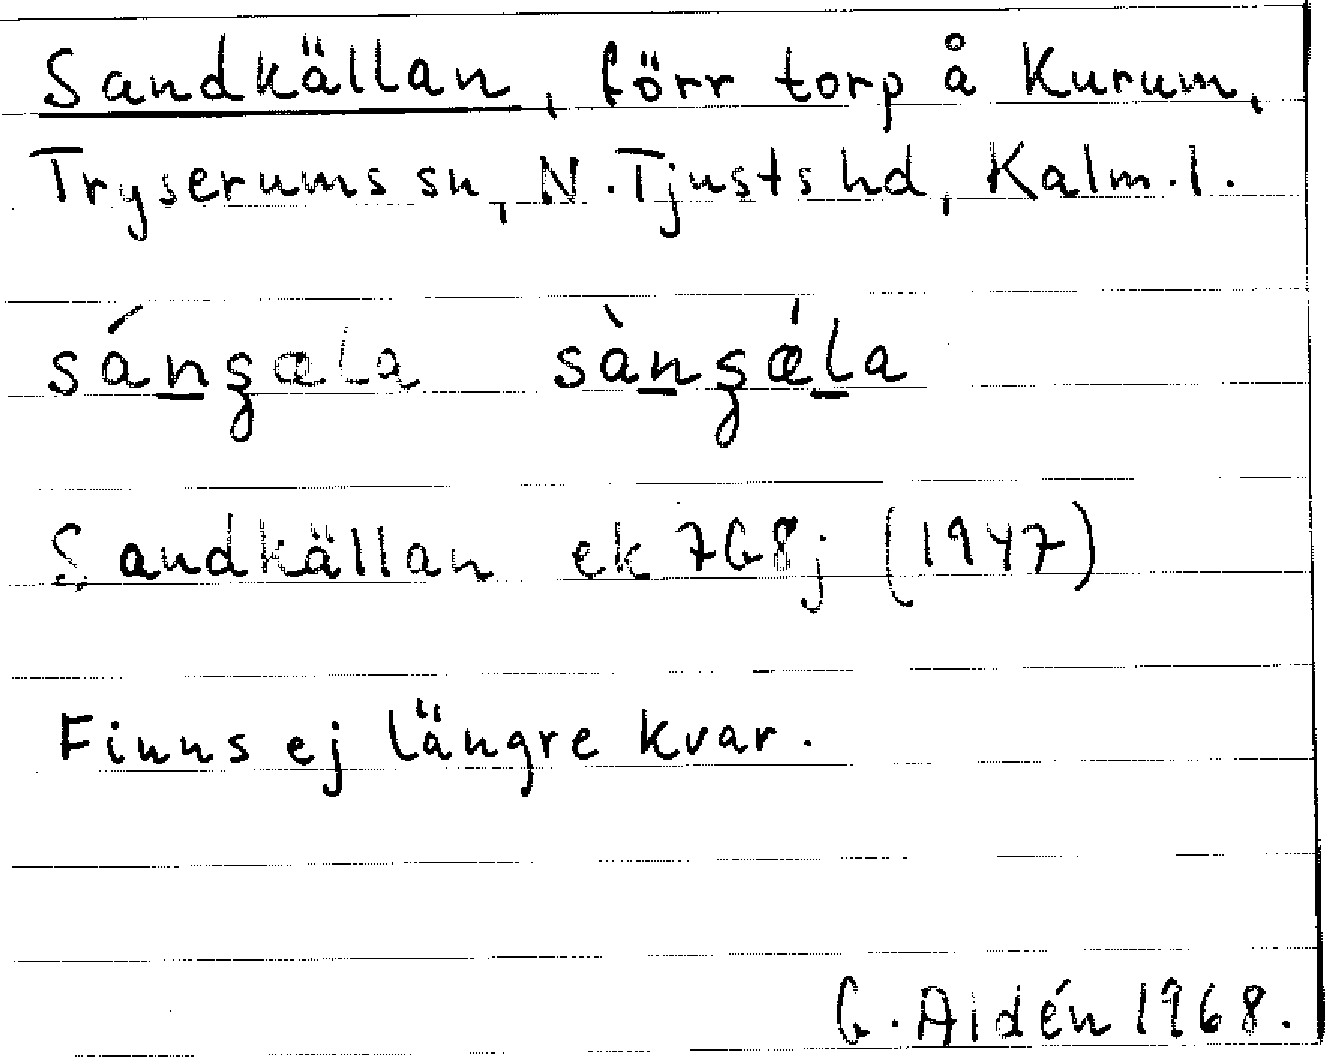 Sandkällan, förr torp å Kurum,
Tryserums sn, N. Tjusts hd, Kalm. l.
sánʒæla sànʒǽla
Sandkällan ek 7G8j (1947)
Finns ej längre kvar.
G. Aldén 1968.